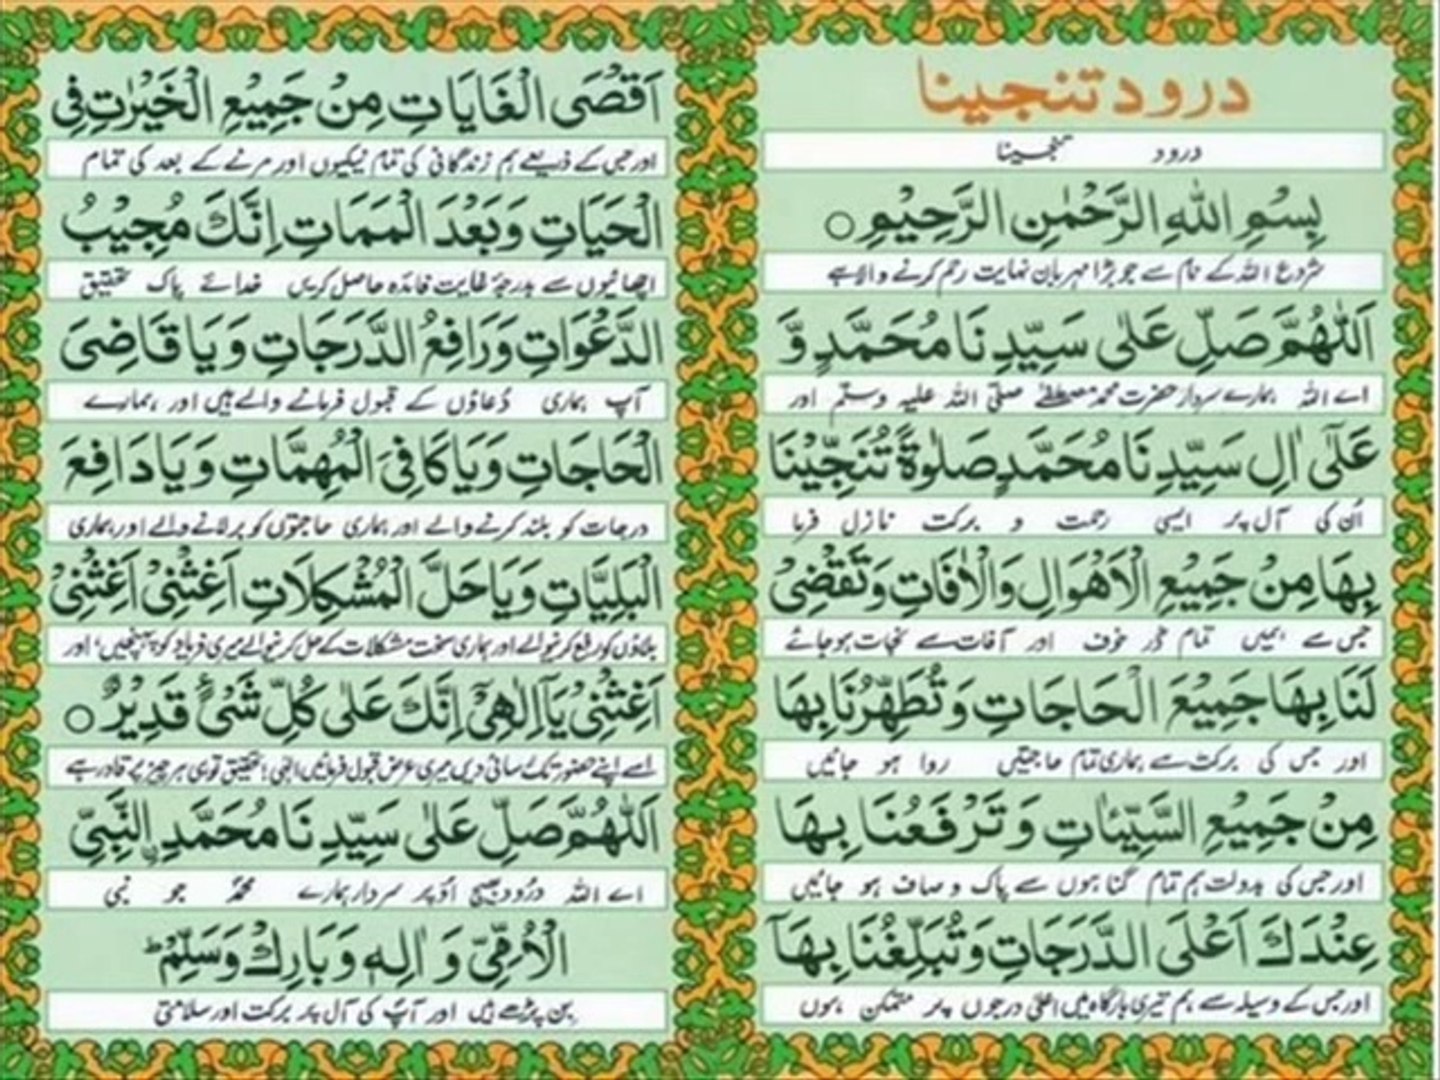 درود تنجینا
درود تنجینا
بِسْمِ اللهِ الرَّحْمٰنِ الرَّحِيْمِ ○
شروع اللہ کے نام سے جو بڑا مہربان نہایت رحم کرنے والا ہے
اَللّٰهُمَّ صَلِّ عَلٰى سَيِّدِنَا مُحَمَّدٍ وَّ
اے اللہ ہمارے سردار حضرت محمد مصطفےٰ صلی اللہ علیہ وسلم اور
عَلٰٓى اٰلِ سَيِّدِنَا مُحَمَّدٍ صَلٰوةً تُنَجِّيْنَا
اُن کی آل پر ایسی رحمت و برکت نازل فرما
بِهَا مِنْ جَمِيْعِ الْاَهْوَالِ وَالْاٰفَاتِ وَتَقْضِىْ
جس سے ہمیں تمام ڈر خوف اور آفات سے نجات ہو جائے
لَنَا بِهَا جَمِيْعَ الْحَاجَاتِ وَتُطَهِّرُنَا بِهَا
اور جس کی برکت سے ہماری تمام حاجتیں روا ہو جائیں
مِنْ جَمِيْعِ السَّيِّئَاتِ وَتَرْفَعُنَا بِهَا
اور جس کی بدولت ہم تمام گناہوں سے پاک و صاف ہو جائیں
عِنْدَكَ اَعْلَى الدَّرَجَاتِ وَتُبَلِّغُنَا بِهَآ
اور جس کے وسیلہ سے ہم تیری بارگاہ میں اعلیٰ درجوں پر متمکن ہوں
اَقْصَى الْغَايَاتِ مِنْ جَمِيْعِ الْخَيْرٰتِ فِى
اور جس کے ذریعے ہم زندگانی کی تمام نیکیوں اور مرنے کے بعد کی تمام
الْحَيَاتِ وَبَعْدَ الْمَمَاتِ اِنَّكَ مُجِيْبُ
اچھائیوں سے بدرجۂ غایت فائدہ حاصل کریں خدائے پاک تحقیق
الدَّعْوَاتِ وَرَافِعُ الدَّرَجَاتِ وَيَا قَاضِىَ
آپ ہماری دُعاؤں کے قبول فرمانے والے ہیں اور ہمارے
الْحَاجَاتِ وَيَا كَافِىَ الْمُهِمَّاتِ وَيَا دَافِعَ
درجات کو بلند کرنے والے اور ہماری حاجتوں کو بر لانے والے اور ہماری
الْبَلِيَّاتِ وَيَا حَلَّ الْمُشْكِلَاتِ اَغِثْنِىْ اَغِثْنِىْ
بلاؤں کو رفع کرنیوالے اور ہماری سخت مشکلات کے حل کرنیوالے میری فریاد کو پہنچیں، اور
اَغِثْنِىْ يَآ اِلٰهِىْٓ اِنَّكَ عَلٰى كُلِّ شَىْءٍ قَدِيْرٌ ○
اسے اپنے حضور تک رسائی دیں میری عرض قبول فرمائیں الٰہی! تحقیق توہی ہر چیز پر قادر ہے
اَللّٰهُمَّ صَلِّ عَلٰى سَيِّدِنَا مُحَمَّدِ ۨالنَّبِىِّ
اے اللہ درُود بھیج اُوپر سردار ہمارے محمدؐ جو نبی
الْاُمِّىِّ وَاٰلِهٖ وَبَارِكْ وَسَلِّمْ ؕ
بن پڑھے ہیں اور آپؐ کی آل پر برکت اور سلامتی